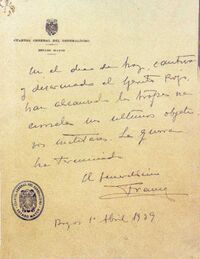 CUARTEL GENERAL DEL GENERALISIMO
ESTADO MAYOR
En el dia de hoy, cautivo
y desarmado el Ejercito Rojo,
han alcanzado las tropas na-
cionales sus ultimos objeti-
vos militares. La guerra
ha terminado.
El Generalisimo
Franco
Burgos 1º Abril 1939